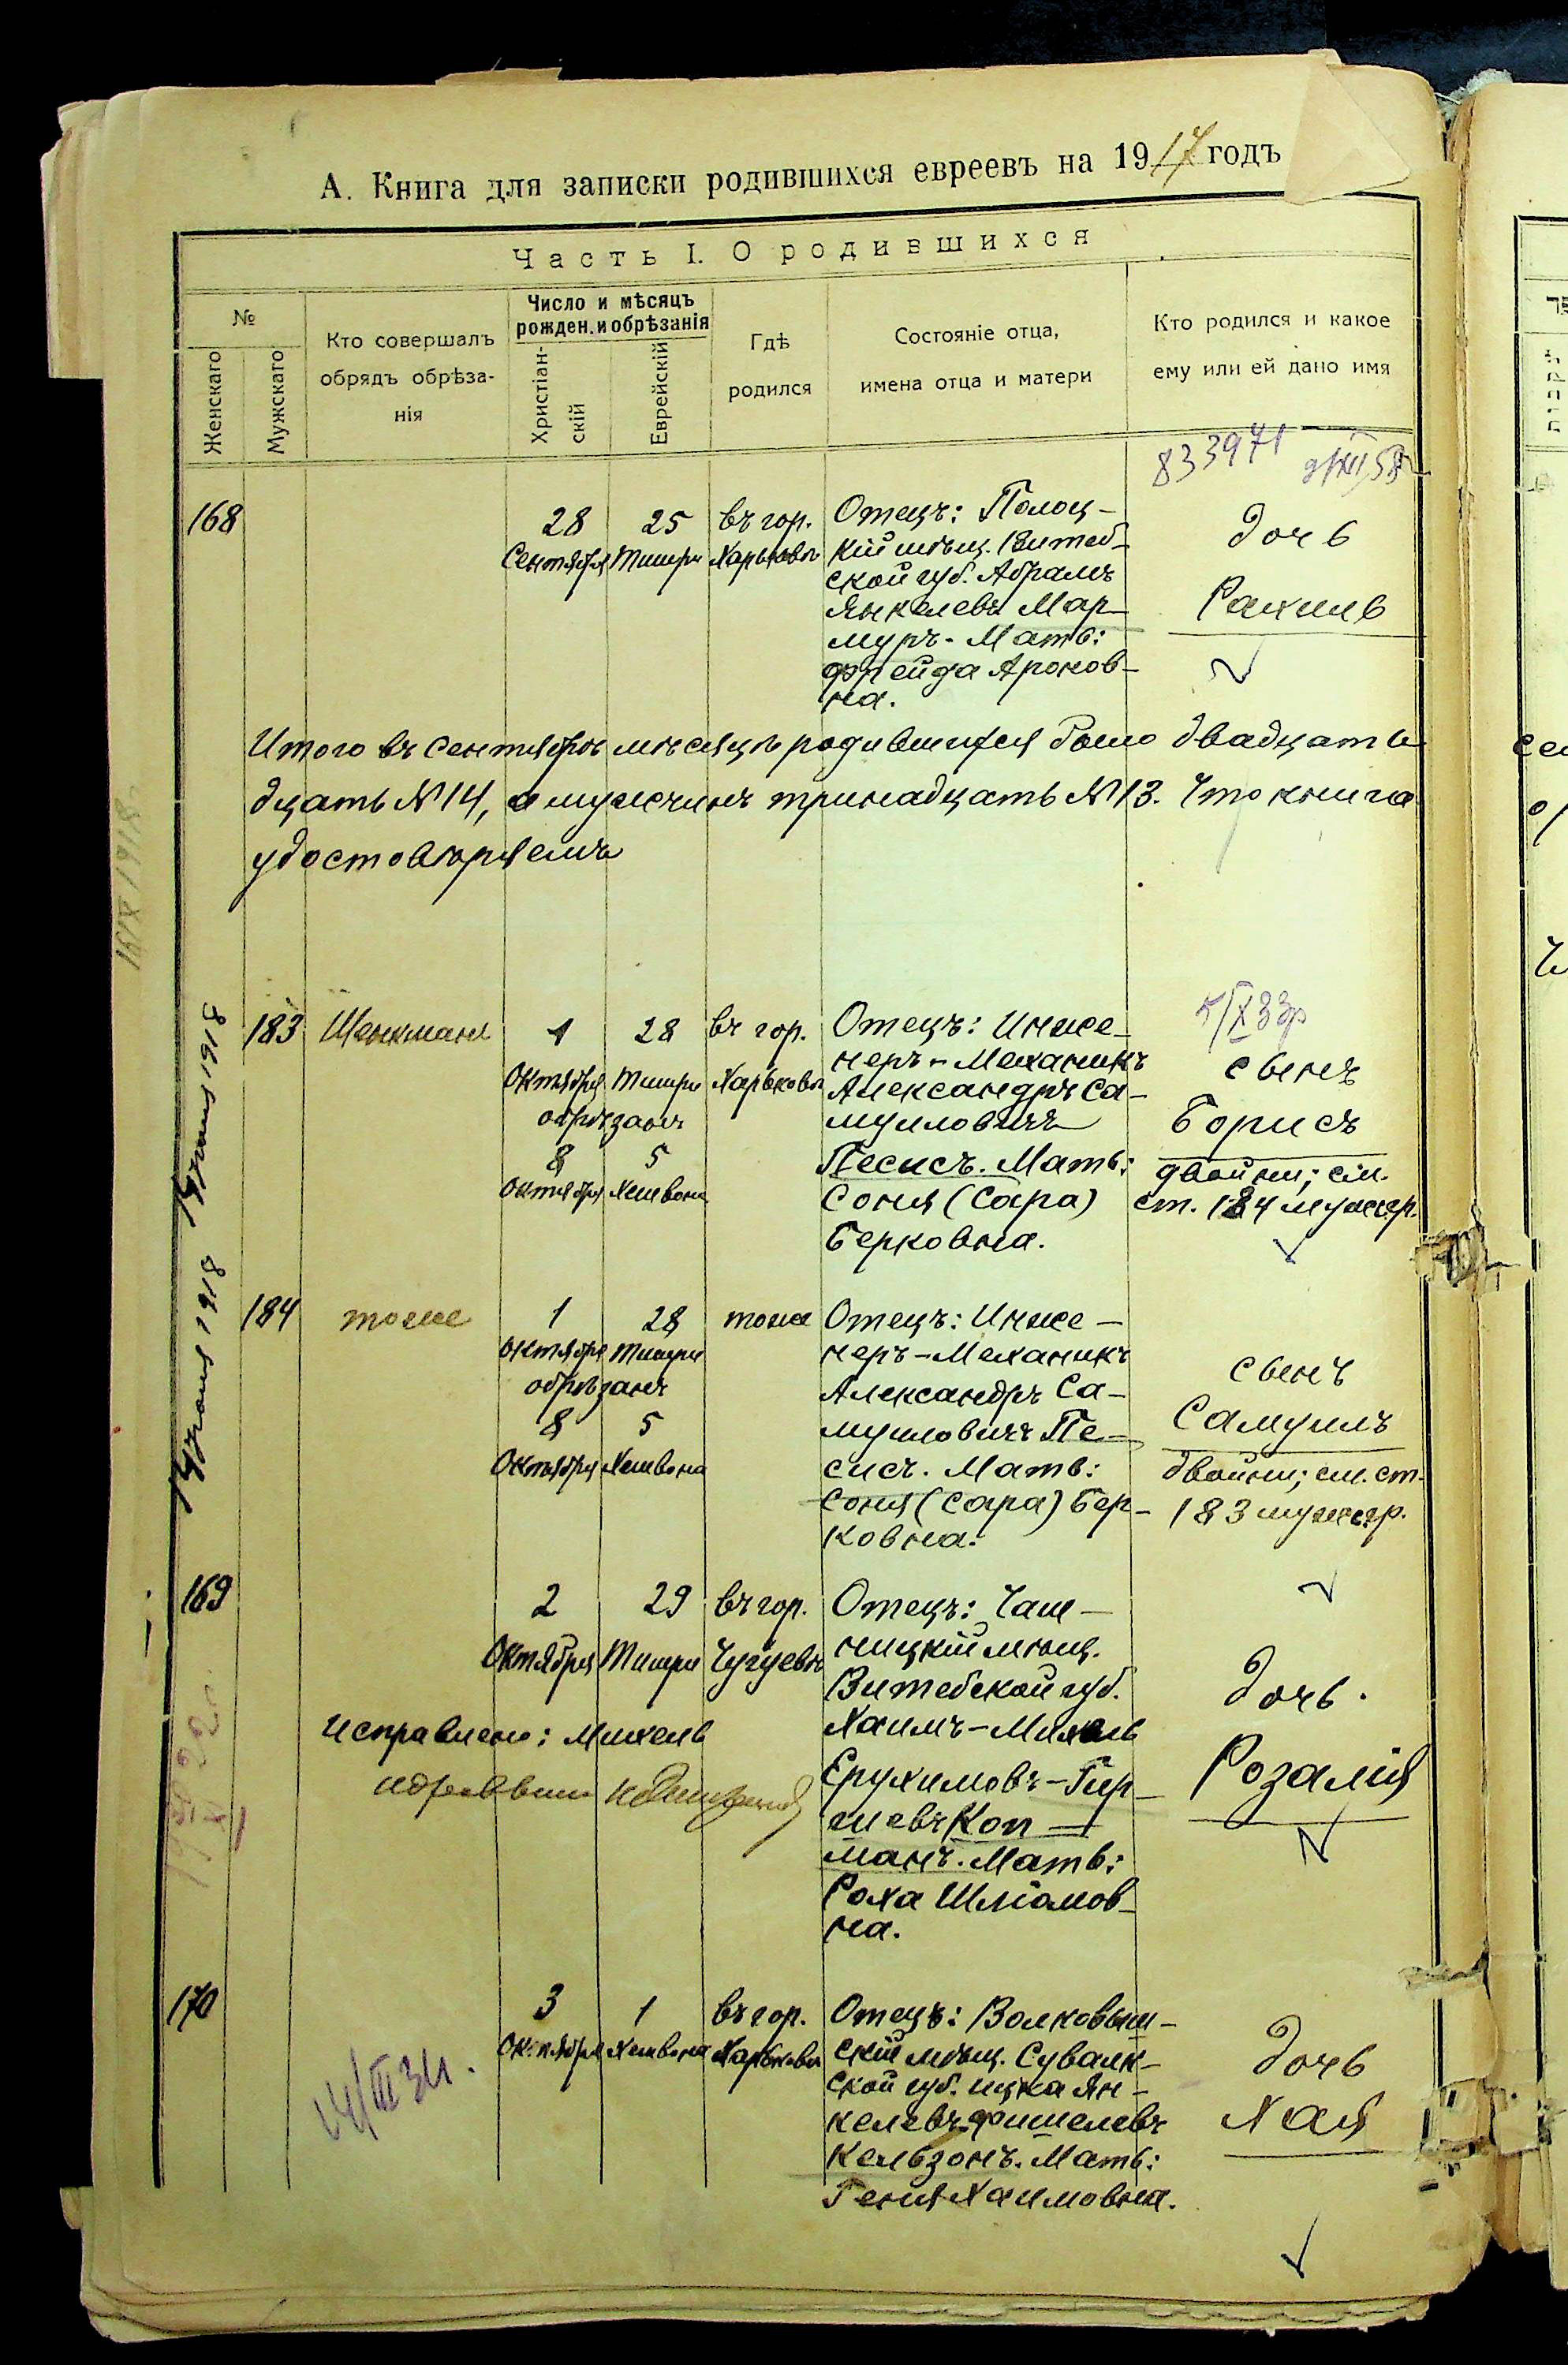 А. Книга для записки родившихся евреевъ на 1917 годъ
Часть I. О родившихся
№
Женскаго
Мужскаго
Кто совершалъ
обрядъ обрѣза-
нія
Число и мѣсяцъ
рожден. и обрѣзанія
Христіан-
скій
Еврейскій
Гдѣ
родился
Состояніе отца,
имена отца и матери
Кто родился и какое
ему или ей дано имя
833971
168
28
Сентября
25
Тишри
въ гор.
Харьковѣ
Отецъ: Полоц-
кій мѣщ. Витеб-
ской губ. Абрамъ
Янкелевъ Мар-
муръ. Мать:
Фрейда Аронов-
на.
дочь
Рахиль
Итого въ сентябрѣ мѣсяцѣ родившихся было двадцать
дцать №14, а мужчинъ тринадцать №13. Что книга
удостовѣряемъ
183
Шенкманъ
1
Октября
обрѣзанъ
8
Октября
28
Тишри
5
Хешвона
въ гор.
Харьковѣ
Отецъ: Инже-
неръ-Механикъ
Александръ Са-
муиловичъ
Песисъ. Мать:
Соня (Сара)
Берковна.
5/X 33р
сынъ
Борисъ
двойни; см.
ст. 184 муж. гр.
184
тоже
1
Октября
обрѣзанъ
8
Октября
28
Тишри
5
Хешвона
тоже
Отецъ: Инже-
неръ-Механикъ
Александръ Са-
муиловичъ Пе-
сисъ. Мать:
Соня (Сара) Бер-
ковна.
сынъ
Самуилъ
двойни; см. ст.
183 муж. гр.
169
2
Октября
29
Тишри
въ гор.
Чугуевѣ
Отецъ: Чаш-
ницкій мѣщ.
Витебской губ.
Хаимъ-Михель
Ерухимовъ-Гир-
шевъ Коп-
манъ. Мать:
Роха Шліомов-
на.
дочь.
Розалія
Исправлено: Михель
170
3
Октября
1
Хешвона
въ гор.
Харьковѣ
Отецъ: Волковыш-
скій мѣщ. Сувалк-
ской губ. Ицка Ян-
келевъ-Фишелевъ
Кельзонъ. Мать:
Геня Хаимовна.
дочь
Хая
14/III 34.